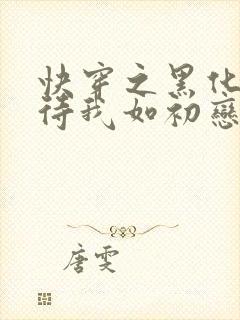 快穿之黑化
待我如初戀
唐雯